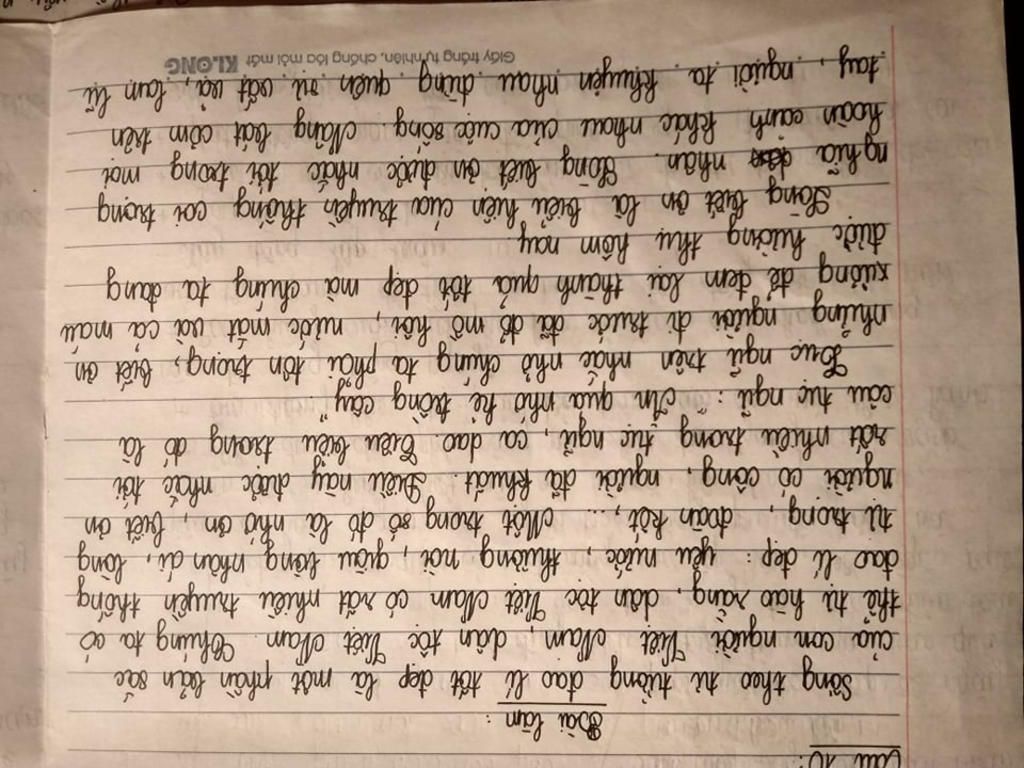 Câu 10:
Bài làm:
Sống theo tư tưởng đạo lí tốt đẹp là một phần bản sắc
của con người Việt Nam, dân tộc Việt Nam. Chúng ta có
thể tự hào rằng, dân tộc Việt Nam có rất nhiều truyền thống
đạo lí đẹp: yêu nước, thương nòi, giàu lòng nhân ái, lòng
tự trọng, đoàn kết,... Một trong số đó là nhớ ơn, biết ơn
người có công, người đã khuất. Điều này được nhắc tới
rất nhiều trong tục ngữ, ca dao. Tiêu biểu trong đó là
câu tục ngữ: "Ăn quả nhớ kẻ trồng cây".
Tục ngữ trên nhắc nhở chúng ta phải tôn trọng, biết ơn
những người đi trước đã đổ mồ hôi, nước mắt và cả máu
xương để đem lại thành quả tốt đẹp mà chúng ta đang
được hưởng thụ hôm nay.
Lòng biết ơn là biểu hiện của truyền thống coi trọng
nghĩa nhân. Lòng biết ơn được nhắc tới trong mọi
hoàn cảnh khác nhau của cuộc sống. Nâng bát cơm trên
tay, người ta khuyên nhau đừng quên vất vả, lam lũ
Giấy trắng tự nhiên, chống lóa mỏi mắt KLONG